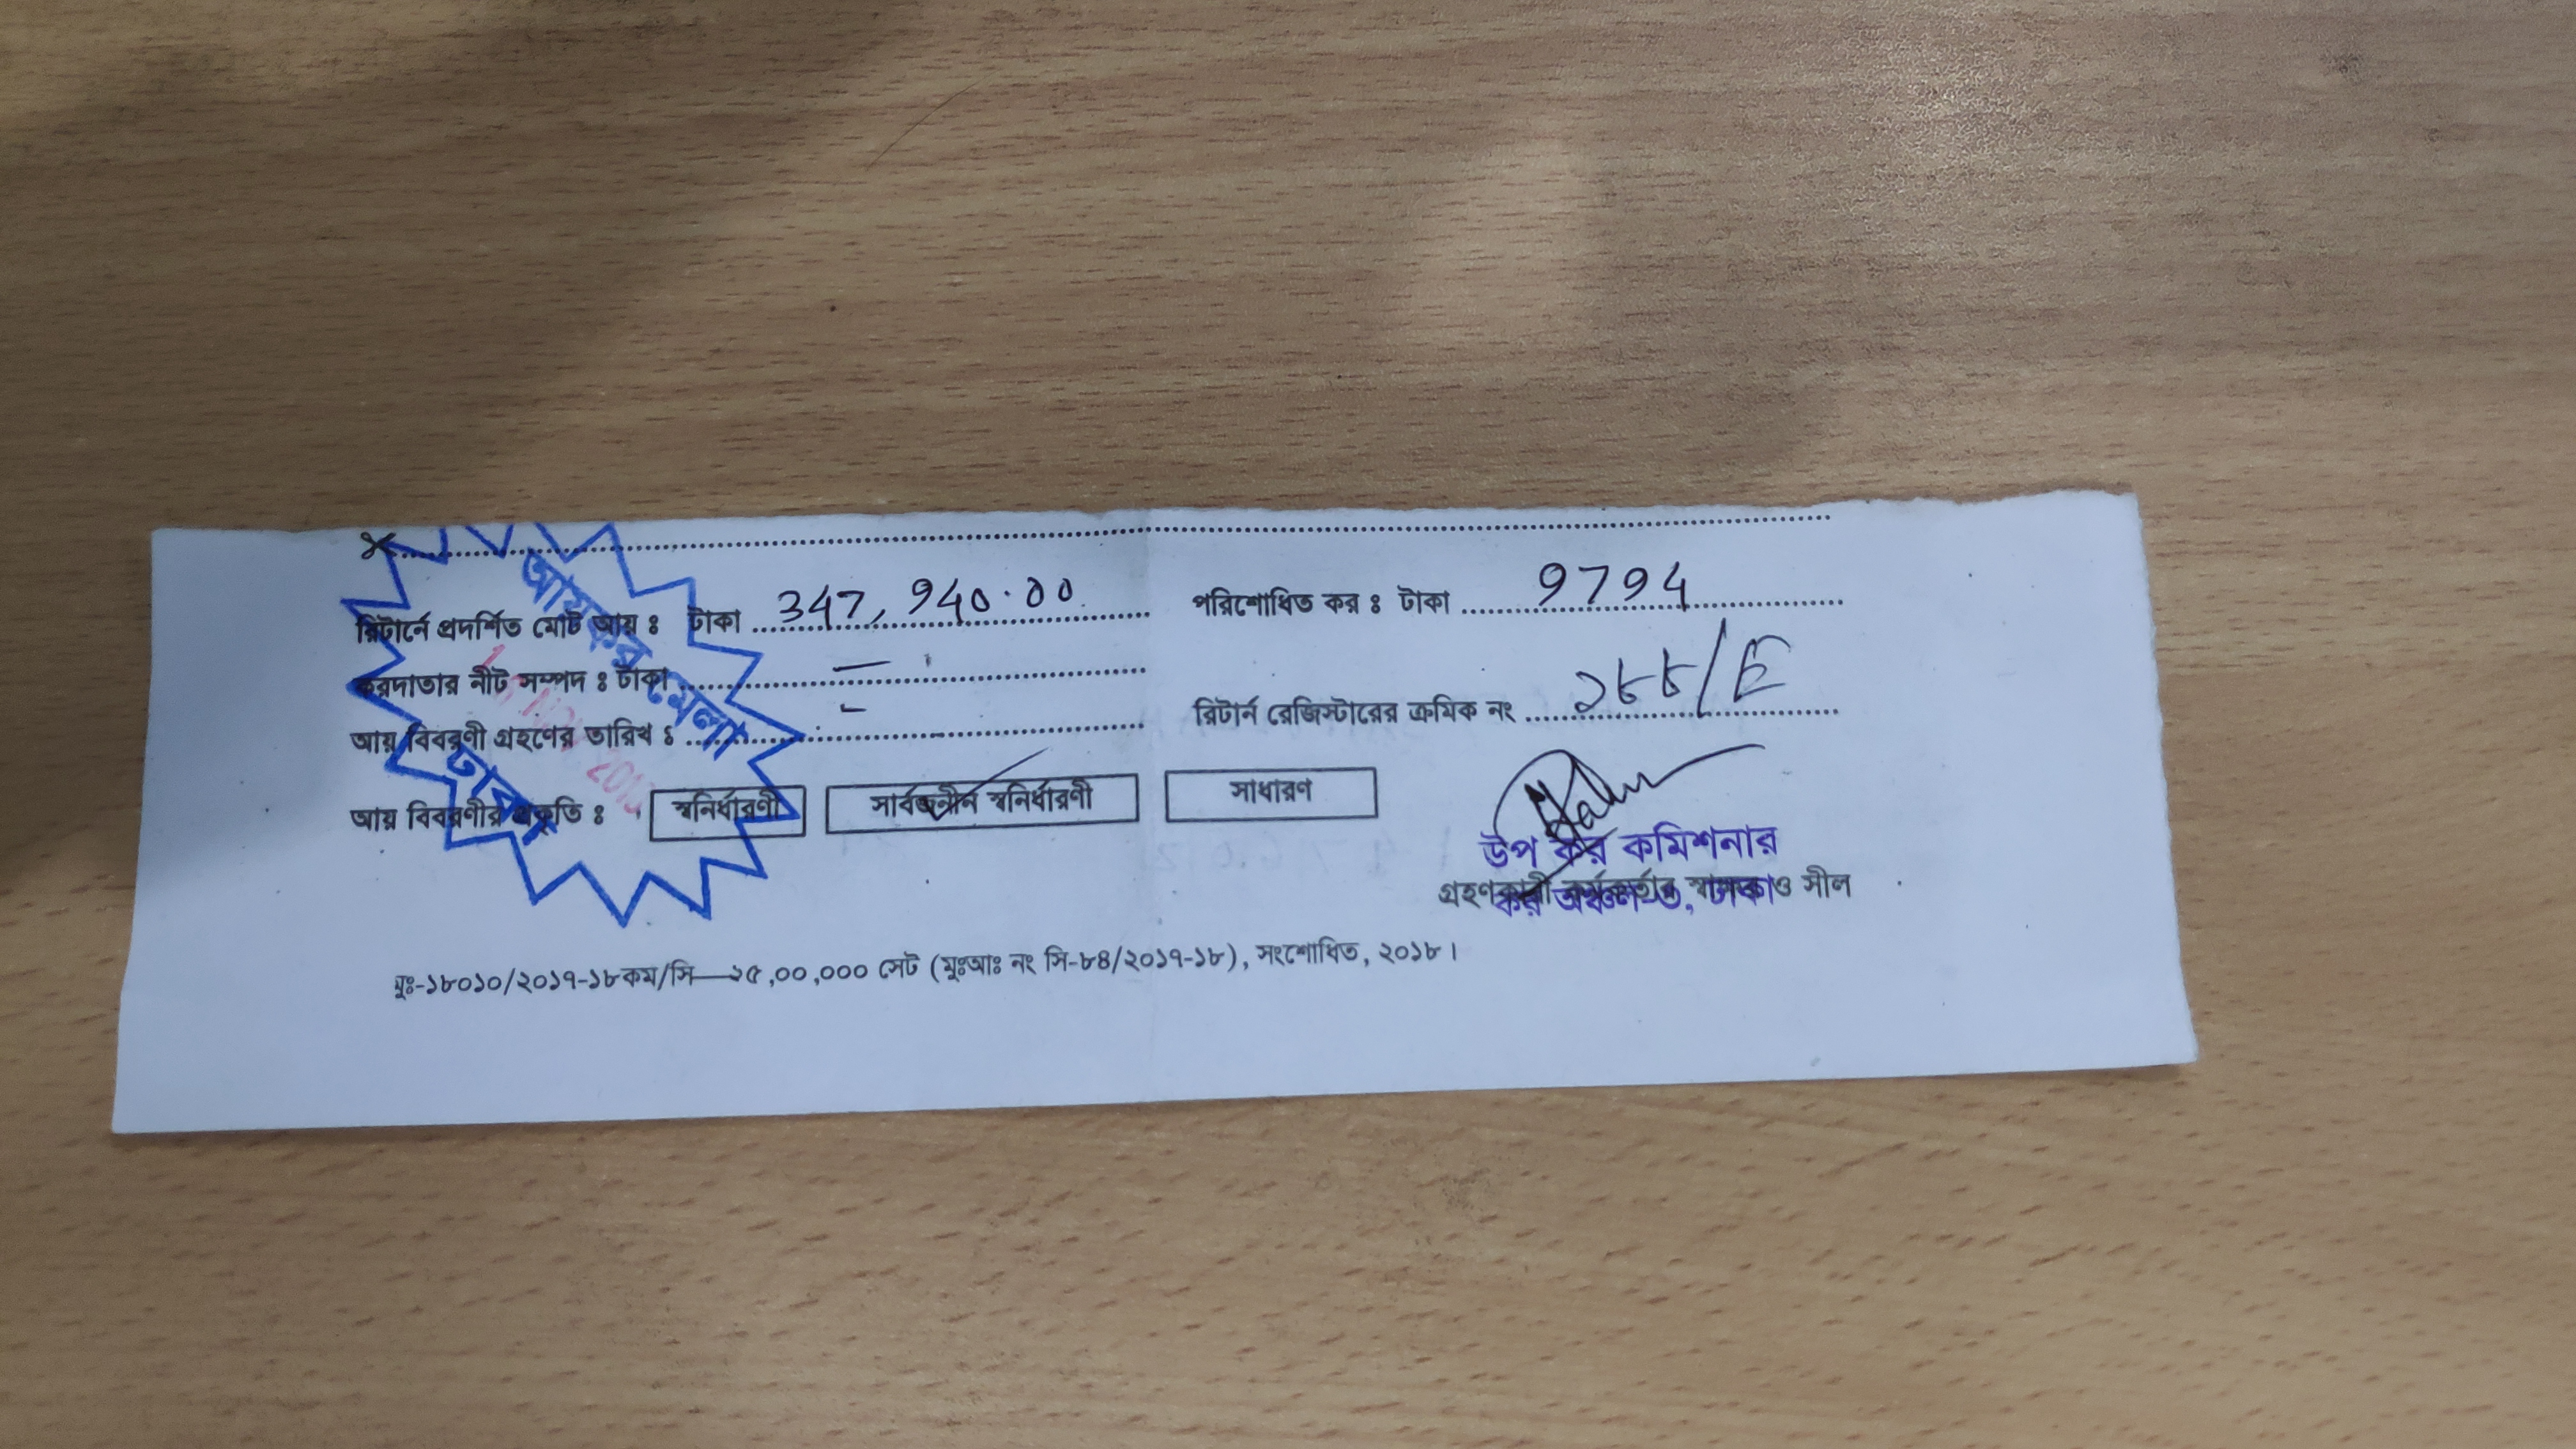 রিটার্নে প্রদর্শিত মোট আয় ঃ টাকা 347,940.00 পরিশোধিত কর ঃ টাকা 9794
করদাতার নীট সম্পদ ঃ টাকা —
রিটার্ন রেজিস্টারের ক্রমিক নং ২৮৮/E
আয় বিবরণী গ্রহণের তারিখ ঃ -
আয় বিবরণীর প্রকৃতি ঃ স্বনির্ধারণী সার্বজনীন স্বনির্ধারণী সাধারণ
আয়কর মেলা
ঢাকা
উপ কর কমিশনার
গ্রহণকারী কর্মকর্তার স্বাক্ষর ও সীল
কর অঞ্চল-৬, ঢাকা
মুঃ-১৮০১০/২০১৭-১৮কম/সি—২৫,০০,০০০ সেট (মুঃআঃ নং সি-৮৪/২০১৭-১৮), সংশোধিত, ২০১৮।